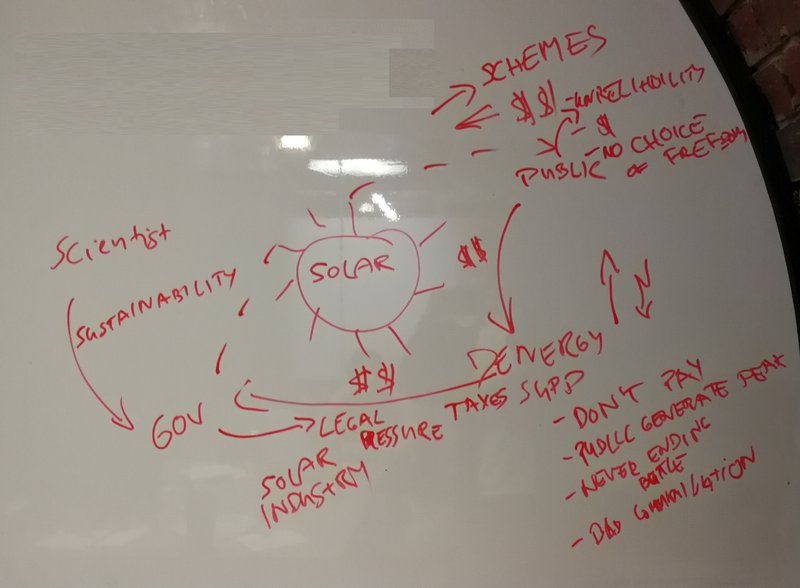 SCHEMES
$$ - UNRELIBILITY
- $
- NO CHOICE
PUBLIC OF FREEDOM
Scientist
SUSTAINABILITY
SOLAR
$$
$$
ENERGY
GOV
LEGAL TAXES SUPP
PRESSURE
SOLAR
INDUSTRY
- DON'T PAY
- PUBLIC GENERATE
- NEVER ENDING
BATTLE
- BAD